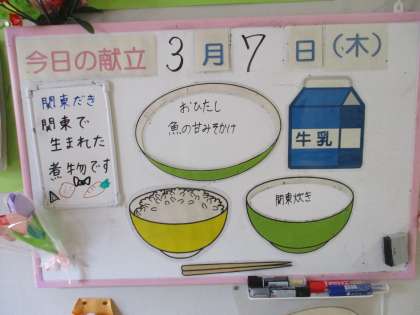 今日の献立 3月7日(木)
関東だき
関東で
生まれた
煮物です
おひたし
魚の甘みそかけ
牛乳
関東炊き